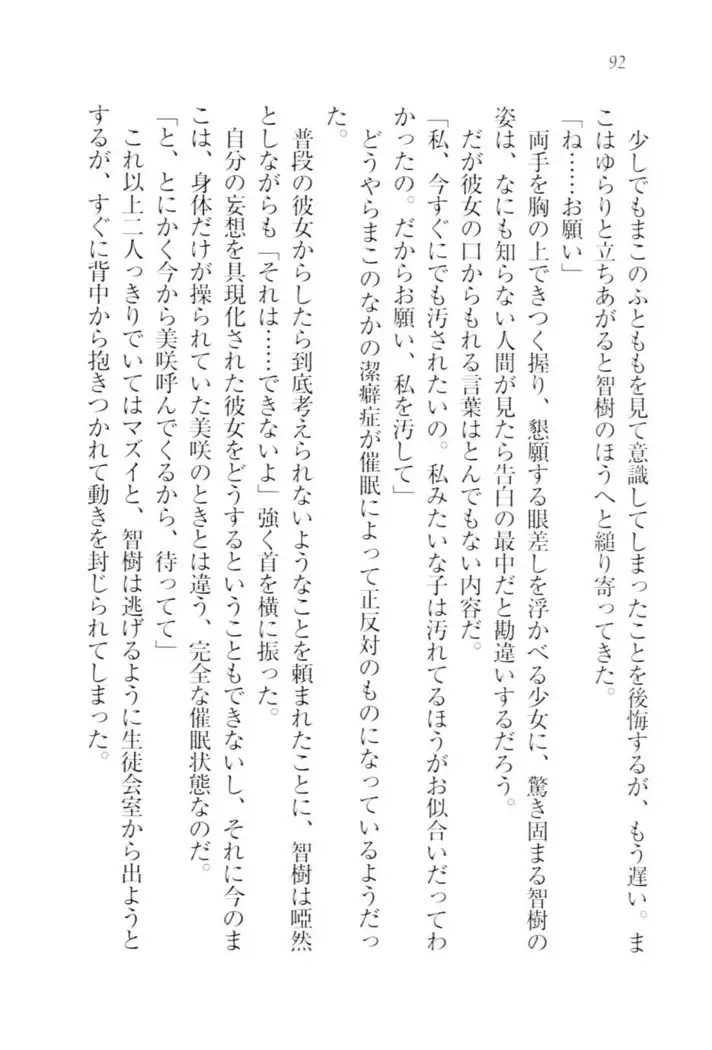 92
少しでもまこのふとももを見て意識してしまったことを後悔するが、もう遅い。ま
こはゆらりと立ちあがると智樹のほうへと縋り寄ってきた。
「ね……お願い」
両手を胸の上できつく握り、懇願する眼差しを浮かべる少女に、驚き固まる智樹の
姿は、なにも知らない人間が見たら告白の最中だと勘違いするだろう。
だが彼女の口からもれる言葉はとんでもない内容だ。
「私、今すぐにでも汚されたいの。私みたいな子は汚れてるほうがお似合いだってわ
かったの。だからお願い、私を汚して」
どうやらまこのなかの潔癖症が催眠によって正反対のものになっているようだっ
た。
普段の彼女からしたら到底考えられないようなことを頼まれたことに、智樹は啞然
としながらも「それは……できないよ」強く首を横に振った。
自分の妄想を具現化された彼女をどうするということもできないし、それに今のま
こは、身体だけが操られていた美咲のときとは違う、完全な催眠状態なのだ。
「と、とにかく今から美咲呼んでくるから、待ってて」
これ以上二人っきりでいてはマズイと、智樹は逃げるように生徒会室から出ようと
するが、すぐに背中から抱きつかれて動きを封じられてしまった。